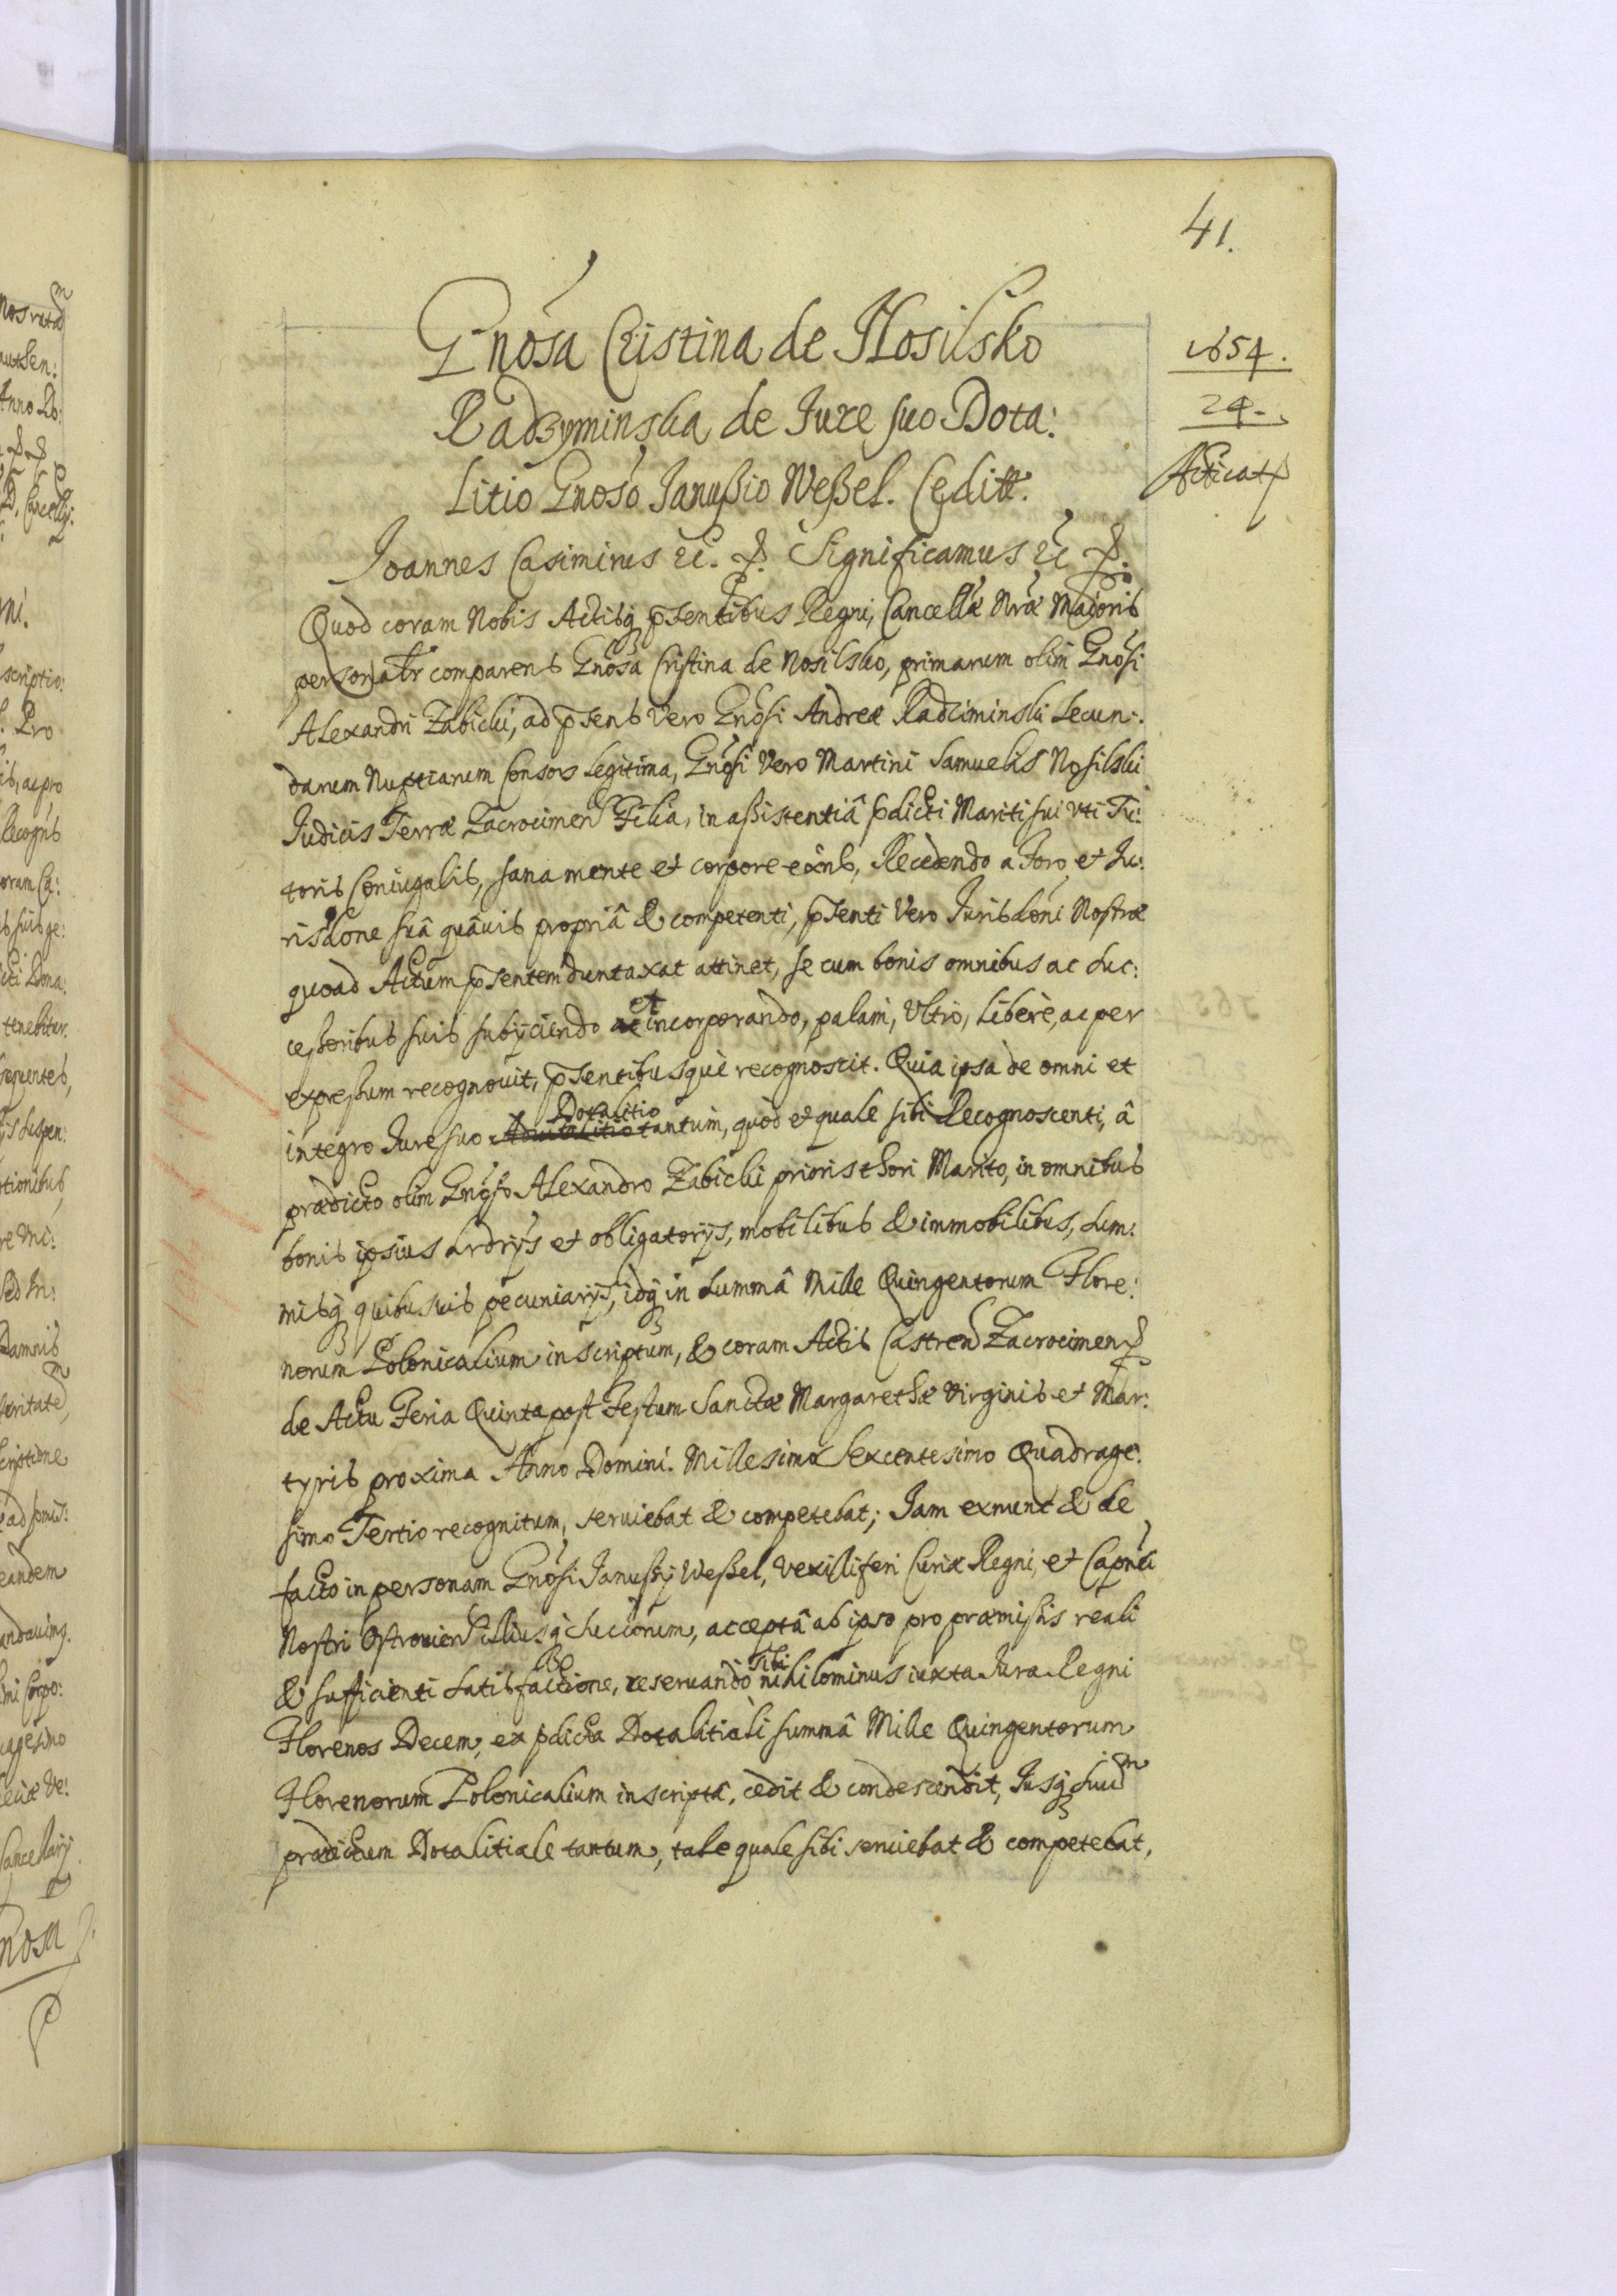 41.
Gnosa Cristina de Nosilsko
Radzyminska de Jure suo Dota:
litio Gnoso Janußio Weßel. Cedit.
1654.
24.
Acticat
Joannes Casimirus etc. Significamus etc.
Quod coram Nobis Actisq psentibus Regni, Cancellæ Nræ Maioris
personatr comparens Gnosa Cristina de Nosilsko, primarum olim Gnosi
Alexandri Zabicki, ad psens vero Gnosi Andreæ Radziminski Secun:
darum Nuptiarum Consors legitima, Gnosi vero Martini Samuelis Nosilski
Judicis Terræ Zacrocimen Filia, in aßistentiâ pdicti Mariti sui vti Tu:
toris Coniugalis, sana mente et corpore exns, Recedendo a Foro et Ju:
risdone suâ quâuis propriâ & competenti, psenti vero Jurisdoni Nostræ
quoad Actum psentem duntaxat attinet, se cum bonis omnibus ac Suc:
ceßoribus suis subijciendo ac et incorporando, palam, Vltro, Liberè, ac per
expreßum recognouit, psentibusque recognoscit. Quia ipsa de omni et
integro Jure suo Aduitalitio Dotalitio tantum, quod et quale sibi Recognoscenti, â
prædicto olim Gnoso Alexandro Zabicki prioris thori Marito, in omnibus
bonis ipsius hrdrijs et obligatorijs, mobilibus & immobilibus, Sum:
misq quibusuis pecuniarijs, idq in Summâ Mille Quingentorum Flore:
norum Polonicalium inscriptum, & coram Actis Castren Zacrocimen
de Actu Feria Quinta post Festum Sanctæ Margarethæ Virginis et Mar:
tyris proxima Anno Domini. Millesimo Sexcentesimo Quadrage:
simo Tertio recognitum, seruiebat & competebat; Jam exnunt & de
facto in personam Gnosi Janußij Weßel, Vexilliferi Curiæ Regni, et Capnei
Nostri Ostrouien illiusq Succorum, acceptâ ab ipso pro præmißis reali
& sufficienti satisfactione, reseruando sibi nihilominus iuxta Jura Regni
Florenos Decem, ex pdicta Dotalitiali summâ Mille Quingentorum
Florenorum Polonicalium inscripta, cedit & condescendit, Jusq Suum
prædictum Dotalitiale tantum, tale quale sibi seruiebat & competebat,